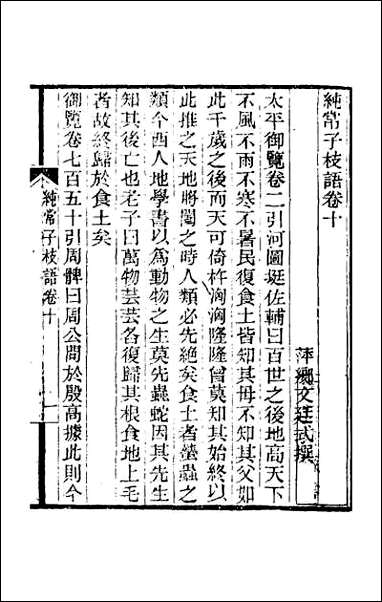 純常子枝語卷十
萍鄉文廷式撰
太平御覽卷二引河圖挺佐輔曰百世之後地高天下
不風不雨不寒不暑民復食土皆知其母不知其父如
此千歲之後而天可倚杵洶洶隆隆曾莫知其始終以
此推之天地將閉之時人類必先絶矣食土者蟲之
類今西人地學書以為動物之生莫先蟲蛇因其先生
知其後亡也老子曰萬物芸芸各復歸其根食地上毛
者故終歸於食土矣
御覽卷七百五十引周髀曰周公問於殷高據此則今
純常子枝語卷十
一